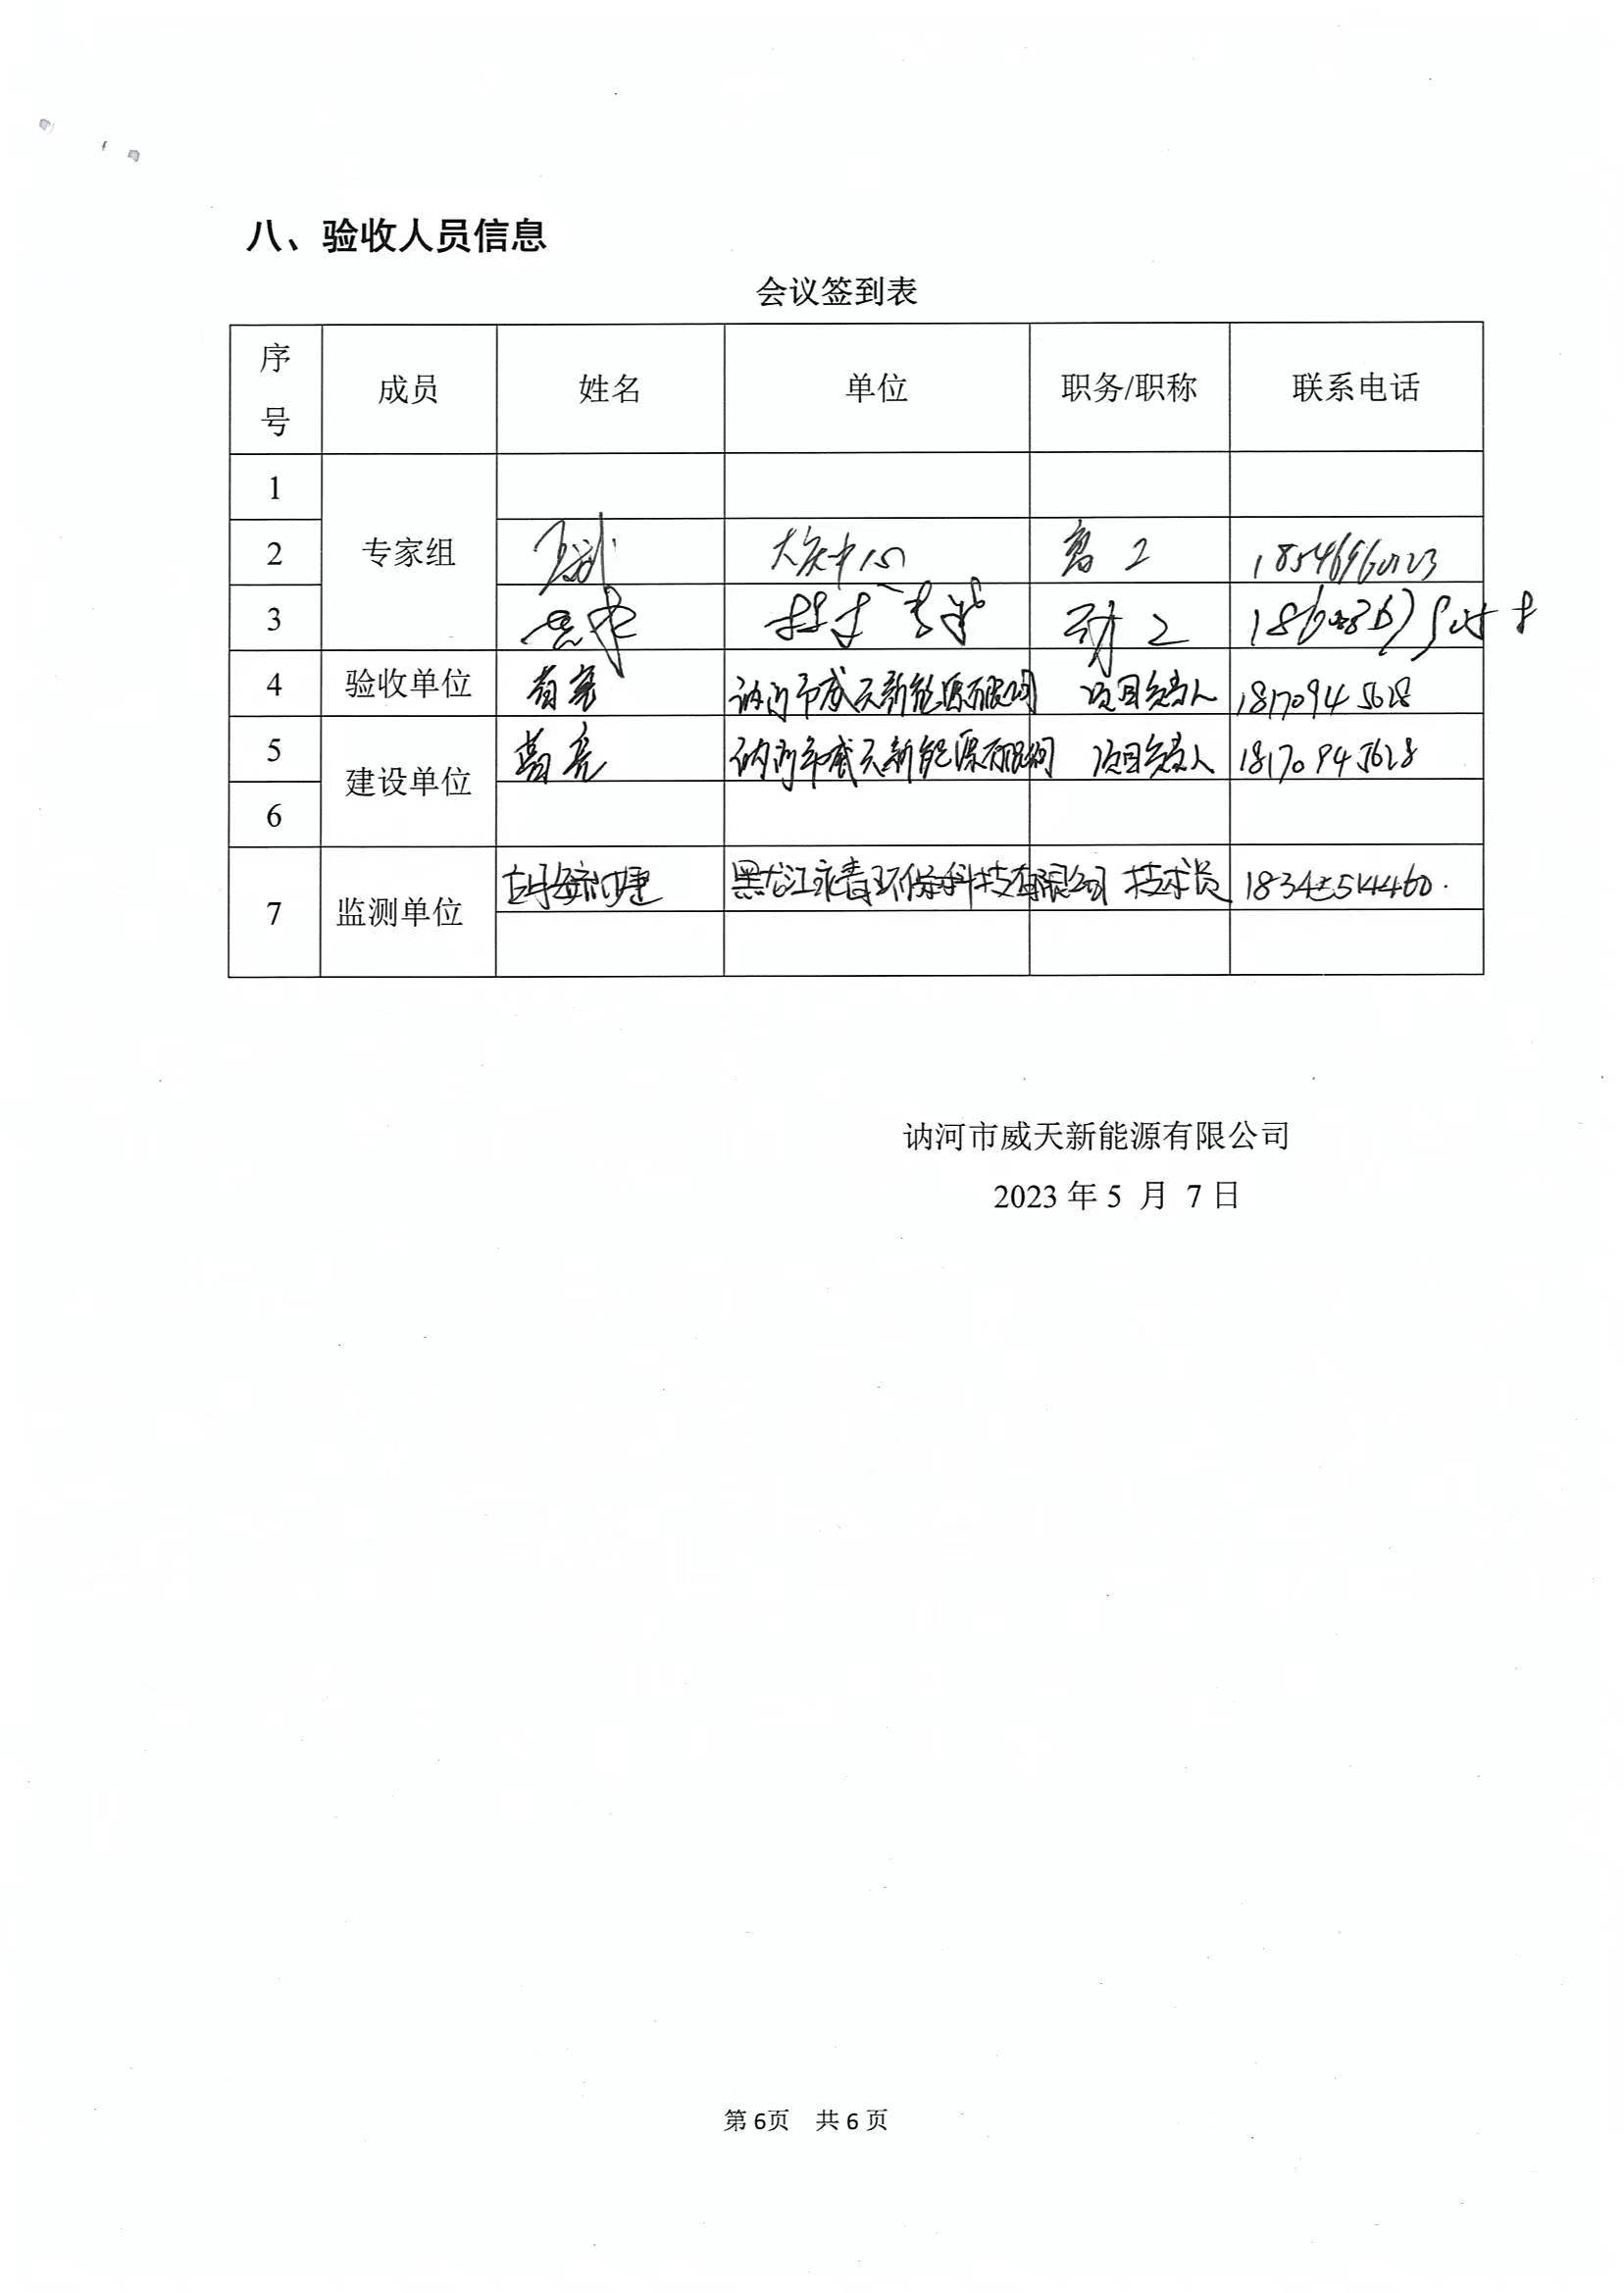 八、验收人员信息
会议签到表
序号 成员 姓名 单位 职务/职称 联系电话
1
2 专家组 大庆中心 高工
3
4 验收单位 葛亮 讷河市威天新能源有限公司 项目负责人 18170945628
5 建设单位 葛亮 讷河市威天新能源有限公司 项目负责人 18170945628
6
7 监测单位 黑龙江永青环保科技有限公司 技术员
讷河市威天新能源有限公司
2023 年 5 月 7 日
第 6页 共 6 页